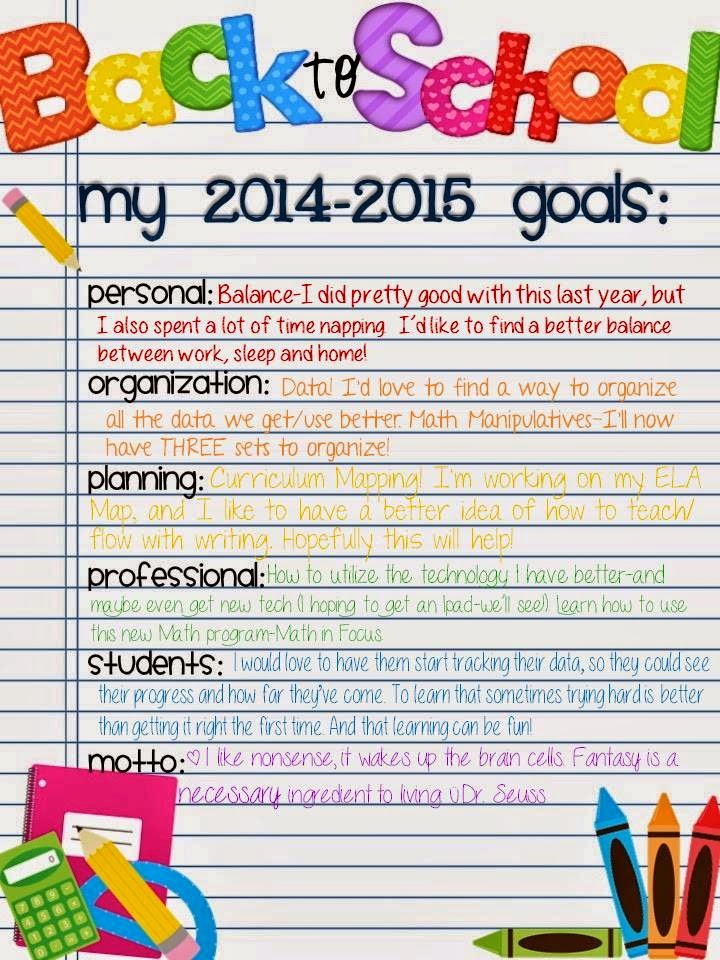 Back to School
my 2014-2015 goals:
personal: Balance-I did pretty good with this last year, but
I also spent a lot of time napping. I'd like to find a better balance
between work, sleep and home!
organization: Data! I'd love to find a way to organize
all the data we get/use better. Math Manipulatives-I'll now
have THREE sets to organize!
planning: Curriculum Mapping! I'm working on my ELA
Map, and I like to have a better idea of how to teach/
flow with writing. Hopefully this will help!
professional: How to utilize the technology I have better-and
maybe even get new tech (I hoping to get an Ipad-we'll see!) Learn how to use
this new Math program-Math in Focus.
students: I would love to have them start tracking their data, so they could see
their progress and how far they've come. To learn that sometimes trying hard is better
than getting it right the first time. And that learning can be fun!
motto: ♡ I like nonsense, it wakes up the brain cells. Fantasy is a
necessary ingredient to living. Dr. Seuss